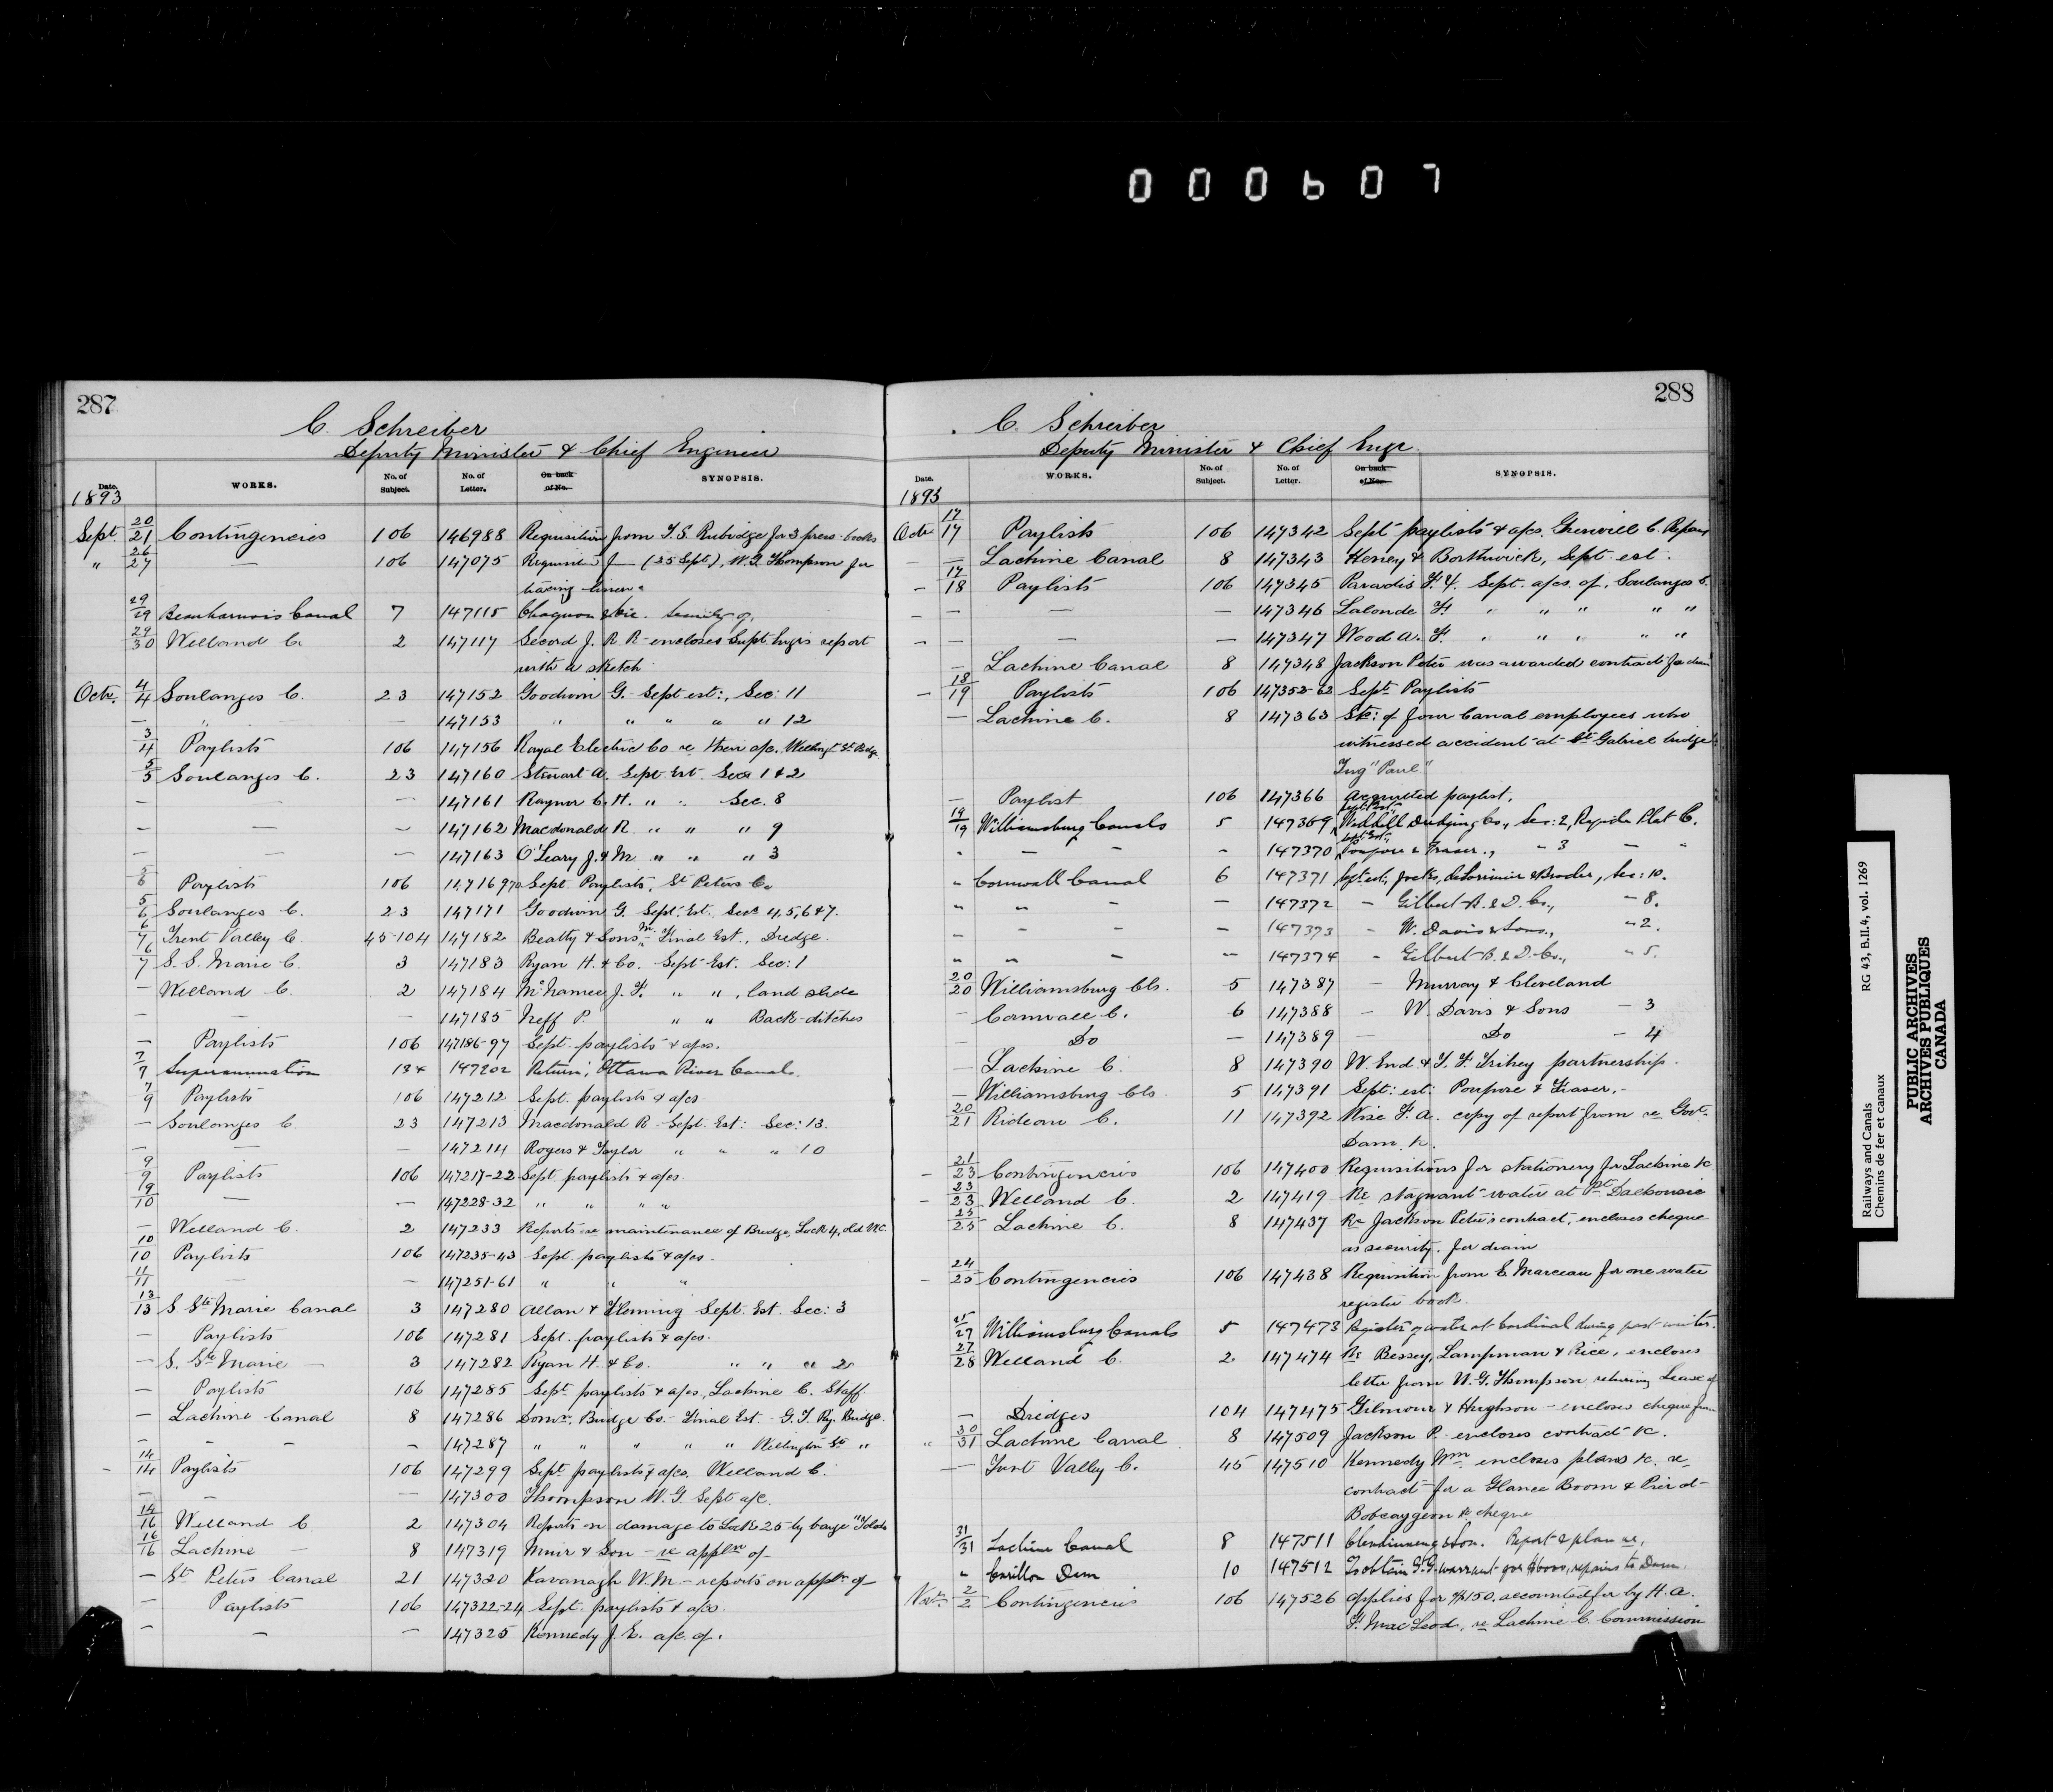 000607
287
C. Schreiber
Deputy Minister & Chief Engineer
Date. WORKS. No. of Subject. No. of Letter. On back of No. SYNOPSIS.
1893
Sept. 20/21 Contingencies 106 146988 Requisition from T. S. Rubidge for 3 press-books
" 26/27 — 106 147075 Requisn f— (25 Sept), W. G. Thompson for
tracing linen
29/29 Beauharnois Canal 7 147115
29/30 Welland C. 2 147117 Secord J. R. R - encloses Supt. Engr's report
with a sketch
Octr. 4/4 Soulanges C. 23 147152 Goodwin G. Sept est:, Sec: 11
— " — 147153 " " " " " 12
3/4 Paylists 106 147156 Royal Electric Co re their a/c. Wellingt. St. Bdge
5/5 Soulanges C. 23 147160 Stewart A. Sept Est. Secs 1 & 2
— — — 147161 Raynor C. H. " " Sec. 8
— — — 147162 Macdonald R. " " " 9
— — — 147163 O'Leary J. & M. " " " 3
5/6 Paylists 106 147169-70 Sept. Paylists, St Peters Co
5/6 Soulanges C. 23 147171 Goodwin G. Sept. Est. Secs 4, 5, 6 & 7.
6/7 Trent Valley C. 45-104 147182 Beatty & Sons M. - Final Est., Dredge.
6/7 S. S. Marie C. 3 147183 Ryan H. & Co. Sept Est. Sec: 1
— Welland C. 2 147184 McNamee J. F. " " , land slide
— — — 147185 Neff P. " " Back-ditches
— Paylists 106 147186-97 Sept. paylists & a/cs.
7/7 Superannuation 134 147202 Return; Ottawa River Canals
7/9 Paylists 106 147212 Sept. paylists & a/cs
— Soulanges C. 23 147213 Macdonald R. Sept. Est: Sec: 13.
— — — 147214 Rogers & Taylor " " " 10
9/9 Paylists 106 147217-22 Sept. paylists & a/cs.
9/10 — — 147228-32 " " " "
— Welland C. 2 147233 Reports re maintenance of Bridge, Lock 4, old W.C.
10/10 Paylists 106 147235-43 Sept. paylists & a/cs.
11/11 — — 147251-61 " " "
13/13 S. Ste Marie Canal 3 147280 Allan & Fleming Sept. Est. Sec: 3
— Paylists 106 147281 Sept. paylists & a/cs.
— S. Ste Marie — 3 147282 Ryan H. & Co. " " " 2
— Paylists 106 147285 Sept. paylists & a/cs, Lachine C. Staff
— Lachine Canal 8 147286 Domn. Bridge Co. - Final Est. - G. T. Ry. Bridge.
— — — — 147287 " " " " " Wellington St "
14/14 Paylists 106 147299 Sept. paylists & a/cs. Welland C.
— — — 147300 Thompson W. G. Sept a/c.
14/16 Welland C. 2 147304 Reports on damage to Lock 25 by barge
16/16 Lachine — 8 147319 Muir & Son - re appln of
— St. Peters Canal 21 147320 Kavanagh W. M. - reports on appln of
— Paylists 106 147322-24 Sept. paylists & a/cs.
— — — 147325 Kennedy J. E. a/c of.
288
C. Schreiber
Deputy Minister & Chief Engr.
Date. WORKS. No. of Subject. No. of Letter. On back of No. SYNOPSIS.
1893
Octr. 17/17 Paylists 106 147342 Sept paylists & a/cs. Grenville C. Repairs
— Lachine Canal 8 147343 Heney & Borthwick, Sept. est.
— 17/18 Paylists 106 147345 Paradis F. Y. Sept. a/cs. of, Soulanges C.
— — — 147346 Lalonde F. " " " " "
— — — — 147347 Wood A. F. " " " " "
— Lachine Canal 8 147348 Jackson Peter was awarded contract for drain
— 18/19 Paylists 106 147352-62 Sept. Paylists
— Lachine C. 8 147363 Ste: of four Canal employees who
witnessed accident at St Gabriel bridge
Tug "Paul"
— Paylist 106 147366 paylist,
19/19 Williamsburg Canals 5 147369 Sept. Est., Weddell Dredging Co., Sec: 2, Rapide Plat C.
" — — - 147370 Sept. Est., Poupore & Fraser., " 3 — "
" Cornwall Canal 6 147371 Sept. est., Jocks, deLorimier & Broder, Sec: 10.
" " " — 147372 — Gilbert B. & D. Co., " 8.
" - - — 147373 — W. Davis & Sons., " 2.
" " - — 147374 — Gilbert B. & D. Co., " 5.
20/20 Williamsburg Cls. 5 147387 — Murray & Cleveland
— Cornwall C. 6 147388 — W. Davis & Sons — 3
— Do — 147389 — Do — 4
— Lachine C. 8 147390 W. End. & T. F. Trihey partnership.
— Williamsburg Cls. 5 147391 Sept: est: Poupore & Fraser.
20/21 Rideau C. 11 147392 Wise F. A. copy of report from re Govt.
Dam &c.
— 21/23 Contingencies 106 147400 Requisitions for stationery for Lachine &c
— 23/23 Welland C. 2 147419 Re stagnant water at Pt. Dalhousie
25/25 Lachine C. 8 147437 Re Jackson Peter's contract, encloses cheque
as security. for drain
— 24/25 Contingencies 106 147438 Requisition from E. Marceau for one water
register book.
25/27 Williamsburg Canals 5 147473 Register of water at Cardinal during past winter.
27/28 Welland C. 2 147474 Re Bessey, Lampman & Rice, encloses
letter from W. G. Thompson, returning Lease of
— Dredges 104 147475 Gilmour & Hughson - encloses cheque from
" 30/31 Lachine Canal 8 147509 Jackson P. encloses contract &c.
— Trent Valley C. 45 147510 Kennedy Wm encloses plans &c. re
contract for a Glance Boom & Pier at
Bobcaygeon & cheque
31/31 Lachine Canal 8 147511 Clendinneng & Son. Report & plan re,
" Carillon Dam 10 147512 To obtain G. G. warrant for repairs to Dam.
Novr. 2/2 Contingencies 106 147526 Applies for $150. accounted for by H. A.
F. MacLeod, re Lachine C. Commission
Railways and Canals RG 43, B.II.4, vol. 1269
Chemins de fer et canaux
PUBLIC ARCHIVES
ARCHIVES PUBLIQUES
CANADA